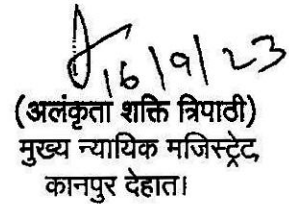 16/9/23
(अलंकृता शक्ति त्रिपाठी)
मुख्य न्यायिक मजिस्ट्रेट,
कानपुर देहात।